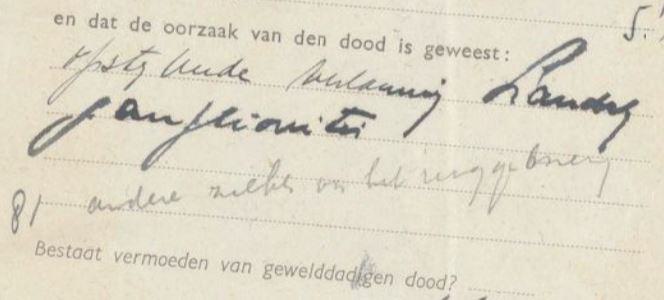 en dat de oorzaak van den dood is geweest:
opstijgende verlamming Landry
ganglionitis
81 andere ziekte van het ruggemerg
Bestaat vermoeden van gewelddadigen dood?